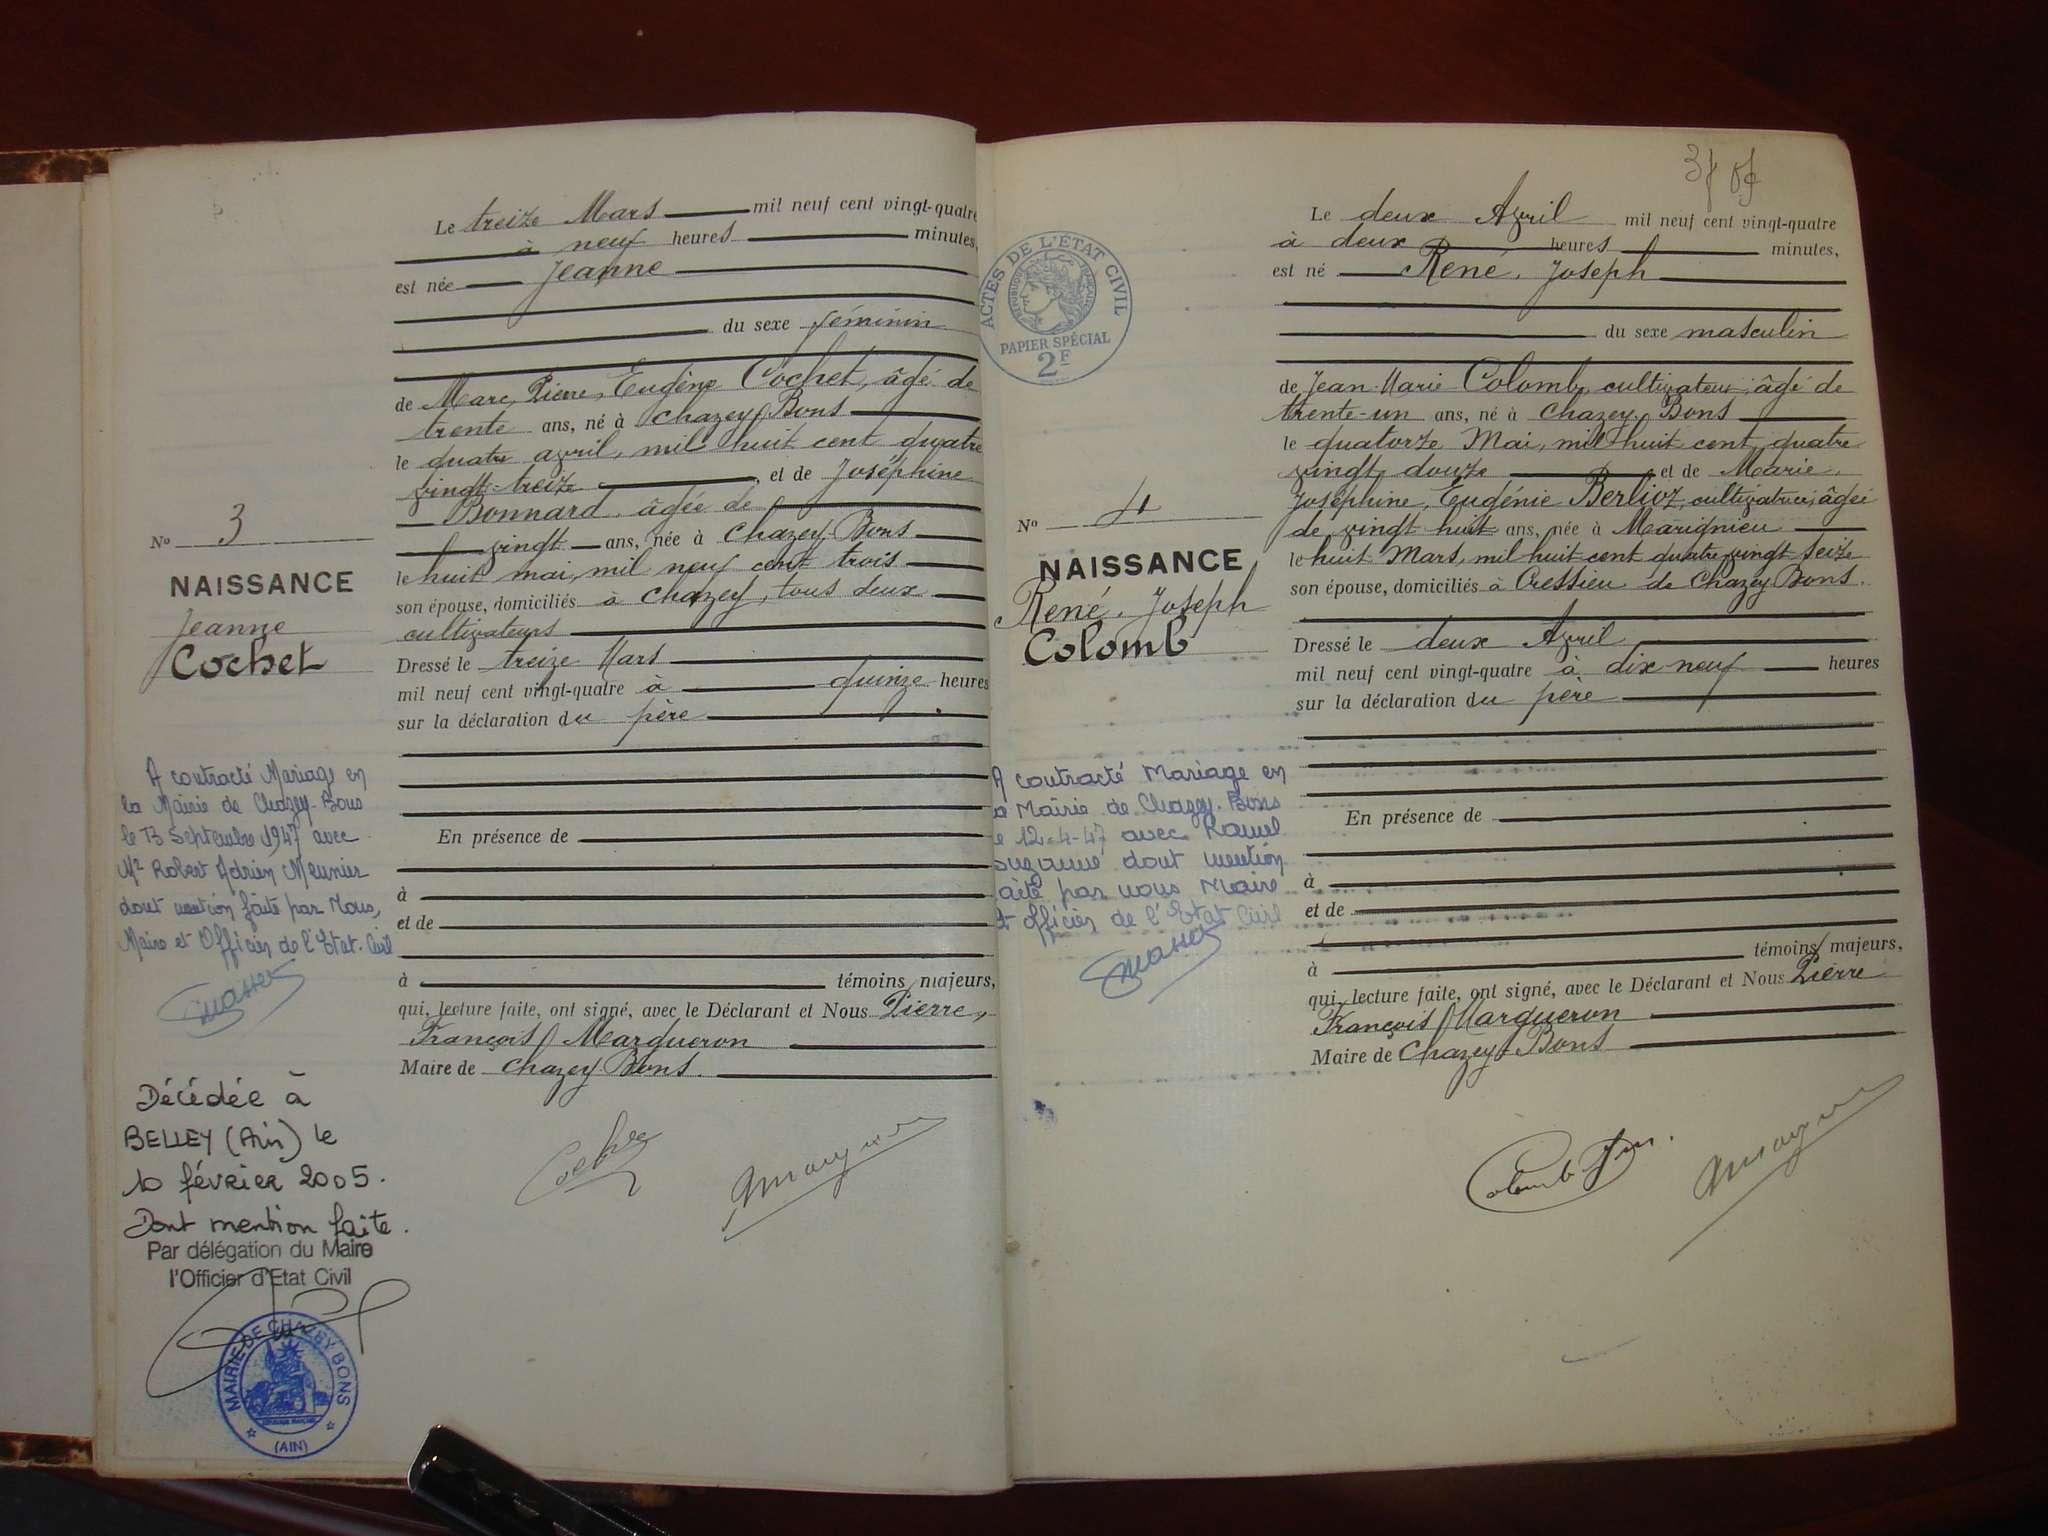 Le treize Mars mil neuf cent vingt-quatre
à neuf heures minutes,
est née Jeanne
du sexe féminin
de Marc, Pierre, Eugène Cochet, âgé de
trente ans, né à Chazey-Bons
le quatre avril, mil huit cent quatre
vingt-treize, et de Joséphine
Bonnard, âgée de
vingt ans, née à Chazey-Bons
le huit mai, mil neuf cent trois
son épouse, domiciliés à Chazey, tous deux
cultivateurs
Dressé le treize Mars
mil neuf cent vingt-quatre à quinze heures
sur la déclaration du père
En présence de
à
et de
à témoins majeurs,
qui, lecture faite, ont signé, avec le Déclarant et Nous Pierre,
François Margueron
Maire de Chazey-Bons.
No 3
NAISSANCE
Jeanne
Cochet
A contracté Mariage en
la Mairie de Chazey-Bons
le 13 Septembre 1947 avec
Mr Robert Adrien Meunier
dont mention faite par Nous,
Maire et Officier de l'Etat-Civil
Décédée à
BELLEY (Ain) le
10 février 2005.
Dont mention faite.
Par délégation du Maire
l'Officier d'Etat Civil
MAIRIE DE CHAZEY BONS
(AIN)
Cochet
ACTES DE L'ÉTAT CIVIL
RÉPUBLIQUE FRANÇAISE
PAPIER SPÉCIAL
2F
Le deux Avril mil neuf cent vingt-quatre
à deux heures minutes,
est né René, Joseph
du sexe masculin
de Jean-Marie Colomb, cultivateur, âgé de
trente-un ans, né à Chazey-Bons
le quatorze Mai, mil huit cent quatre
vingt douze et de Marie,
Joséphine, Eugénie Berlioz, cultivatrice, âgée
de vingt huit ans, née à Marignieu
le huit Mars, mil huit cent quatre vingt seize
son épouse, domiciliés à Cressieu de Chazey-Bons.
Dressé le deux Avril
mil neuf cent vingt-quatre à dix-neuf heures
sur la déclaration du père
En présence de
à
et de
à témoins majeurs,
qui, lecture faite, ont signé, avec le Déclarant et Nous Pierre
François Margueron
Maire de Chazey-Bons
No 4
NAISSANCE
René, Joseph
Colomb
A contracté Mariage en
la Mairie de Chazey-Bons
le 12-4-47 avec
Suzanne dont mention
faite par nous Maire
et Officier de l'Etat Civil
Colomb